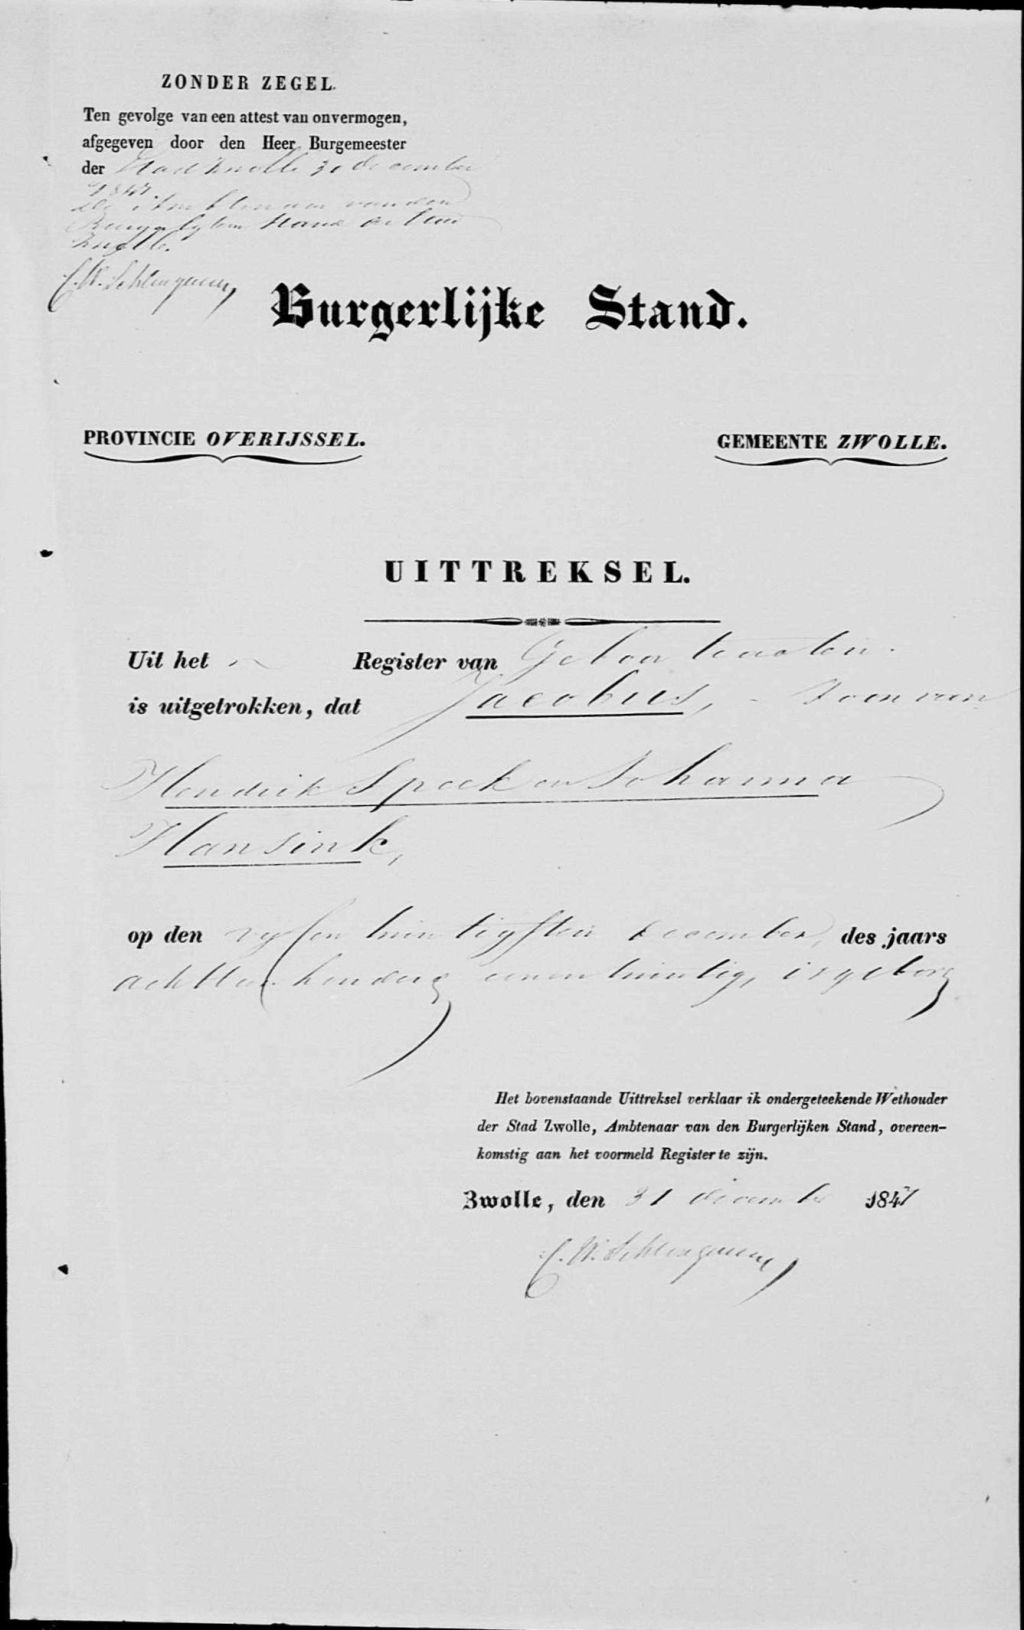 ZONDER ZEGEL.
Ten gevolge van een attest van onvermogen,
afgegeven door den Heer Burgemeester
der Stad Zwolle 30 december
1847.
De Ambtenaar van den
Burgerlyken Stand der Stad
Zwolle.
Burgerlijke Stand.
PROVINCIE OVERIJSSEL.
GEMEENTE ZWOLLE.
UITTREKSEL.
Uit het Register van Geboorteacten
is uitgetrokken, dat Jacobus, Zoon van
Hendrik Speek en Johanna
Hansink,
op den vyfentwintigsten december, des jaars
achttienhonderd eenentwintig, is geboren
Het bovenstaande Uittreksel verklaar ik ondergeteekende Wethouder
der Stad Zwolle, Ambtenaar van den Burgerlijken Stand, overeen-
komstig aan het voormeld Register te zijn.
Zwolle, den 31 december 1847